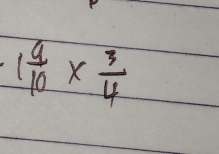 - 1 9/10 × 3/4